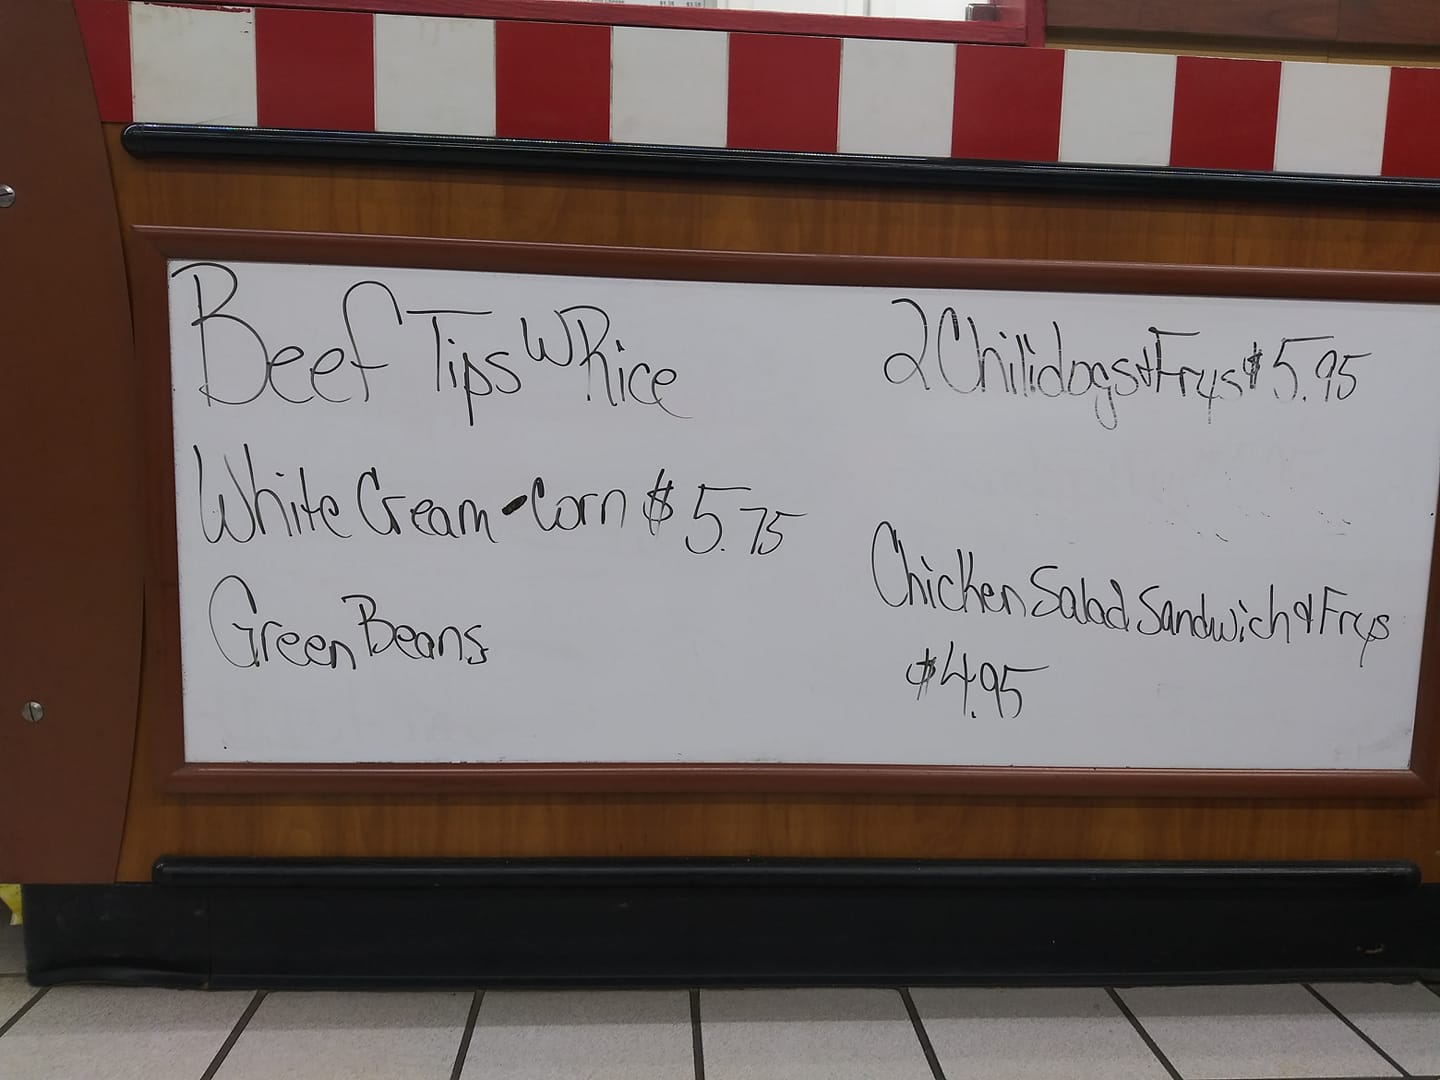 Beef Tips W Rice
White Cream-Corn $5.75
Green Beans
2 Chilidogs & Frys $5.95
Chicken Salad Sandwich & Frys
$4.95